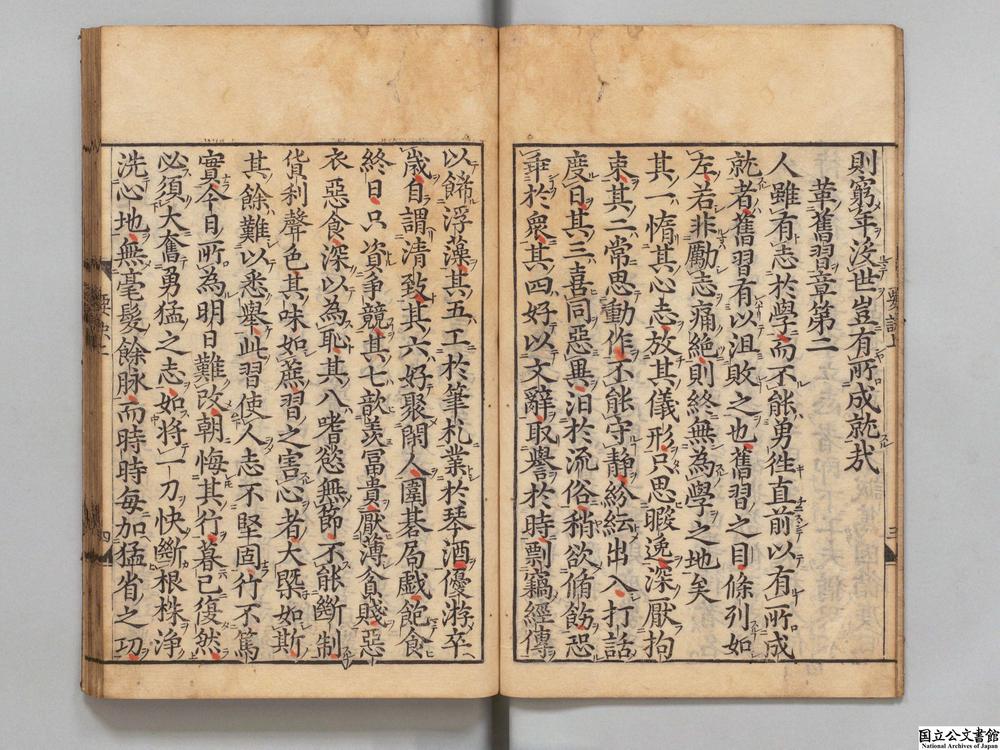 則窮年沒世豈有所成就哉
革舊習章第二
人雖有志於學而不能勇往直前以有所成
就者舊習有以沮敗之也舊習之目條列如
左若非勵志痛絶則終無為學之地矣
其一惰其心志放其儀形只思暇逸深厭拘
束其二常思動作不能守静紛紜出入打話
度日其三喜同惡異汨於流俗稍欲脩飭恐
乖於衆其四好以文辭取譽於時剽竊經傳
以餙浮藻其五工於筆札業於琴酒優游卒
歳自謂清致其六好聚閑人圍碁局戲飽食
終日只資爭競其七歆羨冨貴厭薄貧賤惡
衣惡食深以為恥其八嗜慾無節不能斷制
貨利聲色其味如蔗習之害心者大槩如斯
其餘難以悉舉此習使人志不堅固行不篤
實今日所為明日難改朝悔其行暮已復然
必須大奮勇猛之志如將一刀快斷根株淨
洗心地無毫髮餘脉而時時每加猛省之功
要訣上
三
四
国立公文書館
National Archives of Japan